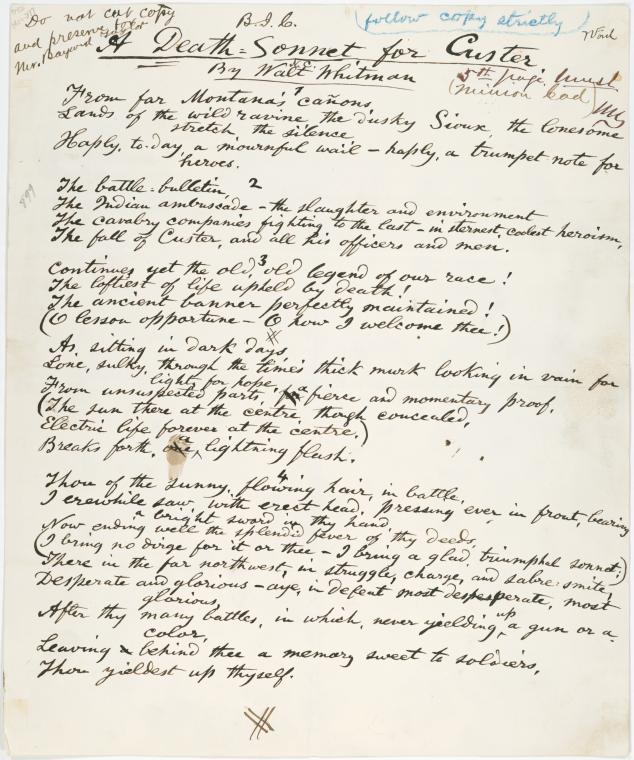 Do not cut copy
and preserve for
Mr. Bayard Taylor
B.I.C.
(follow copy strictly)
A Death-Sonnet for Custer.
By Walt Whitman
5th page. must
(minion lead)
1
From far Montana's cañons,
Lands of the wild ravine, the dusky Sioux, the lonesome
stretch, the silence,
Haply, to-day, a mournful wail – haply, a trumpet note for
heroes.
2
The battle-bulletin,
The Indian ambuscade – the slaughter and environment
The cavalry companies fighting to the last – in sternest, coolest heroism,
The fall of Custer, and all his officers and men.
3
Continues yet the old, old legend of our race!
The loftiest of life upheld by death!
The ancient banner perfectly maintained!
(O lesson opportune – O how I welcome thee!)
As, sitting in dark days,
Lone, sulky, through the time's thick murk looking in vain for
lights, for hope,
From unsuspected parts, a fierce and momentary proof,
(The sun there at the centre, though concealed,
Electric life forever at the centre,)
Breaks forth, a lightning flash.
4
Thou of the sunny, flowing hair, in battle,
I erewhile saw, with erect head, pressing ever in front, bearing
a bright sword in thy hand,
Now ending well the splendid fever of thy deeds,
(I bring no dirge for it or thee – I bring a glad, triumphal sonnet;)
There in the far northwest, in struggle, charge, and sabre-smite,
Desperate and glorious – aye, in defeat most desperate, most
glorious,
After thy many battles, in which, never yielding up a gun or a
color,
Leaving behind thee a memory sweet to soldiers,
Thou yieldest up thyself.